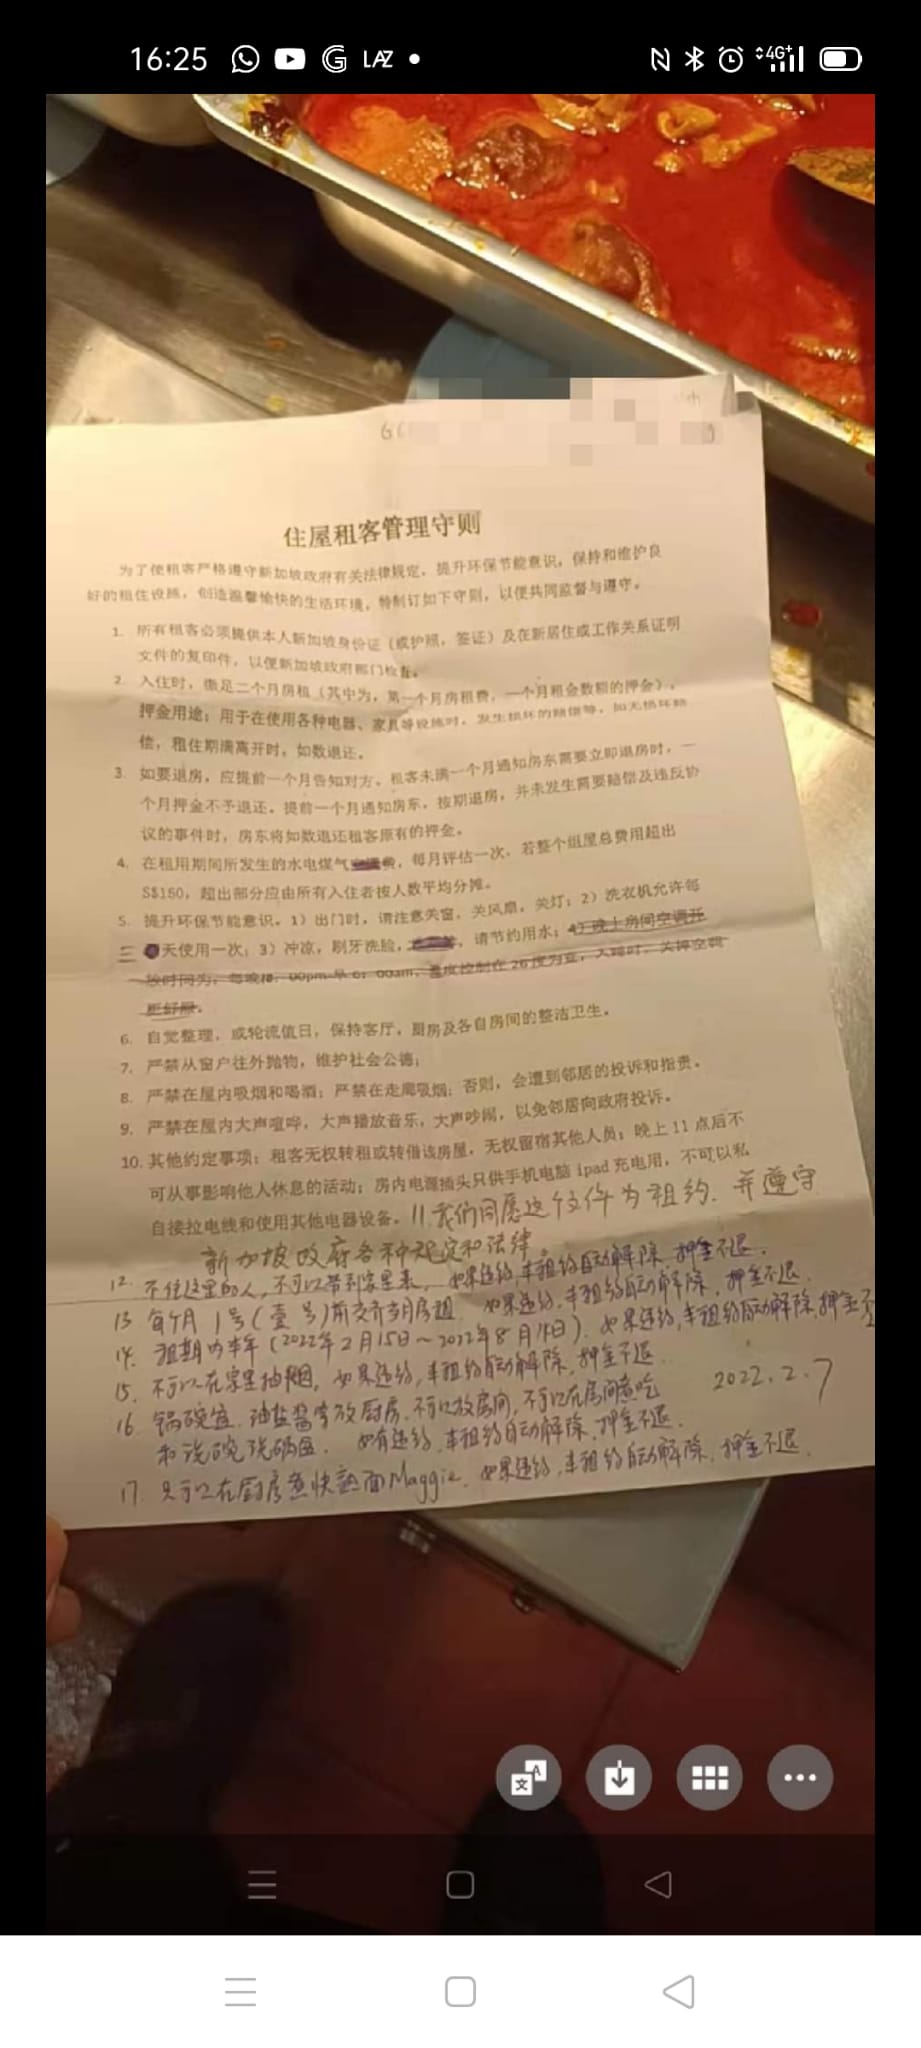 16:25 LAZ 4G+
住屋租客管理守则
为了使租客严格遵守新加坡政府有关法律规定，提升环保节能意识，保持和维护良
好的租住设施，创造温馨愉快的生活环境，特制订如下守则，以便共同监督与遵守。
1. 所有租客必须提供本人新加坡身份证（或护照，签证）及在新居住或工作关系证明
文件的复印件，以便新加坡政府部门检查。
2. 入住时，缴足二个月房租（其中为，第一个月房租费，一个月租金数额的押金）。
押金用途：用于在使用各种电器、家具等设施时，发生损坏的赔偿等，如无损坏赔
偿，租住期满离开时，如数退还。
3. 如要退房，应提前一个月告知对方。租客未满一个月通知房东需要立即退房时，一
个月押金不予退还。提前一个月通知房东，按期退房，并未发生需要赔偿及违反协
议的事件时，房东将如数退还租客原有的押金。
4. 在租用期间所发生的水电煤气费，每月评估一次，若整个组屋总费用超出
S$150，超出部分应由所有入住者按人数平均分摊。
5. 提升环保节能意识。1）出门时，请注意关窗，关风扇，关灯；2）洗衣机允许每
三天使用一次；3）冲凉，刷牙洗脸，请节约用水；4）晚上房间空调开
放时间为，每晚 00pm-早 00am，温度控制在 26 度为宜，入睡时，关掉空调
更舒服。
6. 自觉整理，或轮流值日，保持客厅，厨房及各自房间的整洁卫生。
7. 严禁从窗户往外抛物，维护社会公德；
8. 严禁在屋内吸烟和喝酒；严禁在走廊吸烟；否则，会遭到邻居的投诉和指责。
9. 严禁在屋内大声喧哗，大声播放音乐，大声吵闹，以免邻居向政府投诉。
10. 其他约定事项：租客无权转租或转借该房屋，无权留宿其他人员；晚上 11 点后不
可从事影响他人休息的活动；房内电源插头只供手机电脑 ipad 充电用，不可以私
自接拉电线和使用其他电器设备。11.我们同愿这个文件为租约，并遵守
新加坡政府各种规定和法律。
12. 不住这里的人，不可以带到家里来，如果违约，本租约自动解除，押金不退。
13 每个月1号(壹号)前交齐当月房租 如果违约，本租约自动解除，押金不退.
14. 租期为半年（2022年2月15日～2022年8月14日）. 如果违约，本租约自动解除，押金不
15. 不可以在家里抽烟，如果违约，本租约自动解除，押金不退.
2022.2.7
16 锅碗 油盐酱 放厨房，不可以放房间，不可以在房间煮吃
和洗碗，洗锅. 如有违约，本租约自动解除，押金不退.
17. 只可以在厨房煮快熟面Maggie，如果违约，本租约自动解除，押金不退.